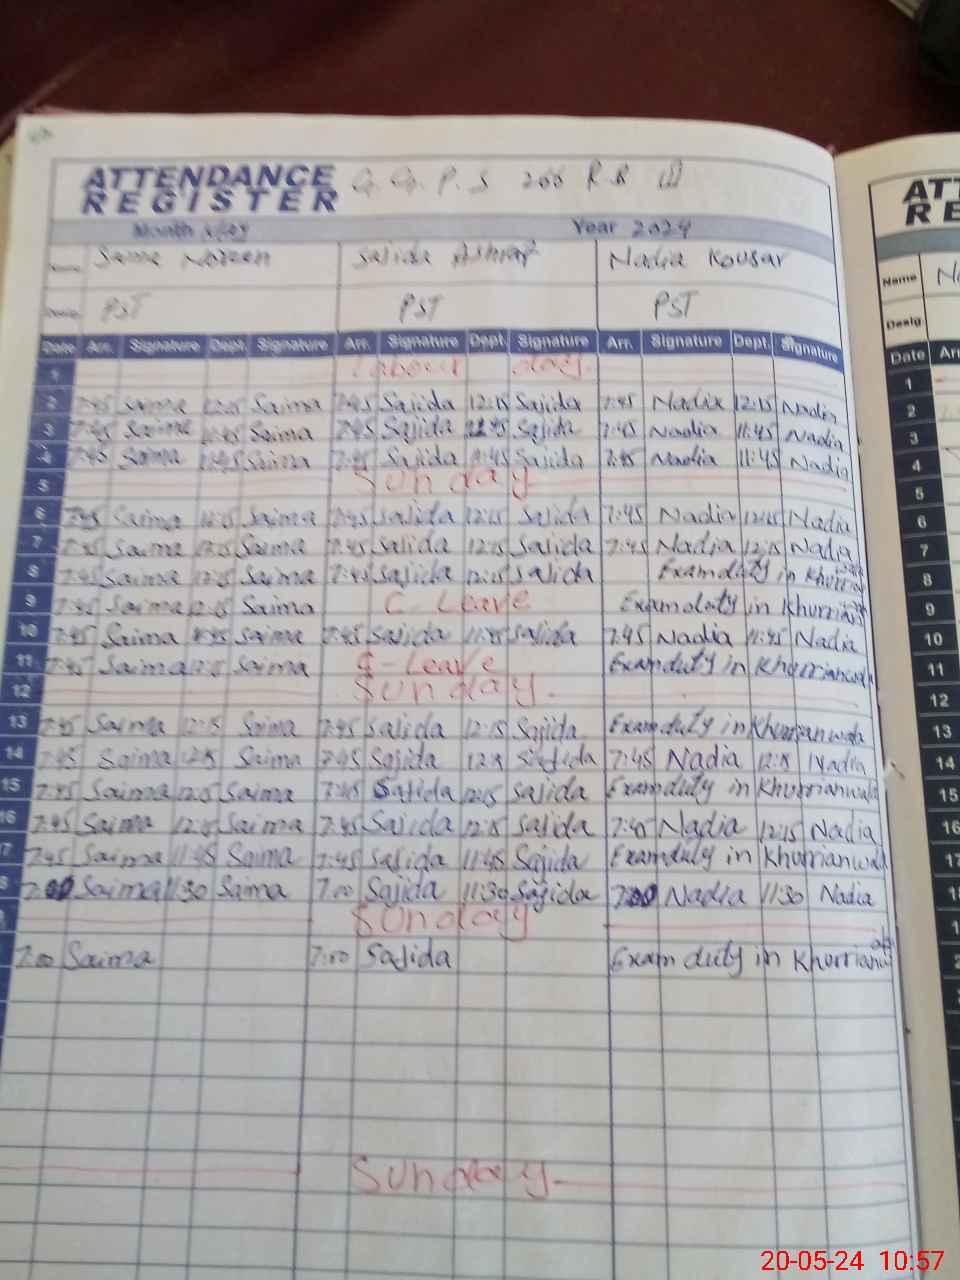 ATTENDANCE REGISTER G. G. P. S 266 R.B III
Month May Year 2024
Name Saima Noreen Sajida Ashraf Nadia Kousar
Desig. PST PST PST
Date Arr. Signature Dept. Signature Arr. Signature Dept. Signature Arr. Signature Dept. Signature
1 Labour day.
2 7:45 Saima 12:15 Saima 7:45 Sajida 12:15 Sajida 7:45 Nadia 12:15 Nadia
3 7:45 Saima 11:45 Saima 7:45 Sajida Sajida 7:45 Nadia 11:45 Nadia
4 7:45 Saima 11:45 Saima 7:45 Sajida 11:45 Sajida 7:45 Nadia 11:45 Nadia
5 Sunday
6 7:45 Saima 12:15 Saima 7:45 Sajida 12:15 Sajida 7:45 Nadia 12:15 Nadia
7 7:45 Saima 12:15 Saima 7:45 Sajida 12:15 Sajida 7:45 Nadia 12:15 Nadia
8 7:45 Saima 12:15 Saima 7:45 Sajida 12:15 Sajida Exam duty in Khurrian
9 7:45 Saima 12:15 Saima C-Leave Exam duty in Khurrian
10 7:45 Saima 11:45 Saima 7:45 Sajida 11:45 Sajida 7:45 Nadia 11:45 Nadia
11 7:45 Saima Saima C-Leave Exam duty in Khurrianwala
12 Sunday.
13 7:45 Saima 12:15 Saima 7:45 Sajida 12:15 Sajida Exam duty in Khurrianwala
14 7:45 Saima 12:15 Saima 7:45 Sajida 12:15 Sajida 7:45 Nadia 12:15 Nadia
15 7:45 Saima 12:15 Saima 7:45 Sajida 12:15 Sajida Exam duty in Khurrianwala
16 7:45 Saima 12:15 Saima 7:45 Sajida 12:15 Sajida 7:45 Nadia 12:15 Nadia
7 7:45 Saima 11:45 Saima 7:45 Sajida 11:45 Sajida Exam duty in Khurrianwala
8 7:00 Saima 11:30 Saima 7:00 Sajida 11:30 Sajida 7:00 Nadia 11:30 Nadia
Sunday
7:00 Saima 7:00 Sajida Exam duty in Khurrianwala
Sunday
ATT
RE
Name
Desig.
Date Arr
1
2
3
4
5
6
7
8
9
10
11
12
13
14
15
16
17
20-05-24 10:57